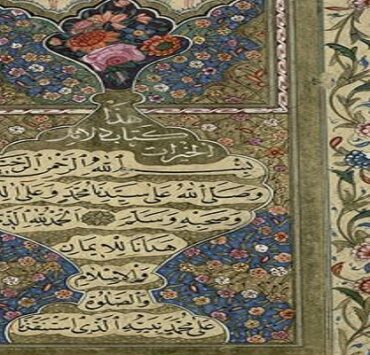 هذا
كتاب دلائل
الخيرات
بسم الله الرحمن الرحيم
وصلى الله على سيدنا محمد وعلى
وصحبه وسلم الحمد لله الذي
هدانا للإيمان
والإسلام
والصلوة
على محمد نبيه الذى استنقذنا